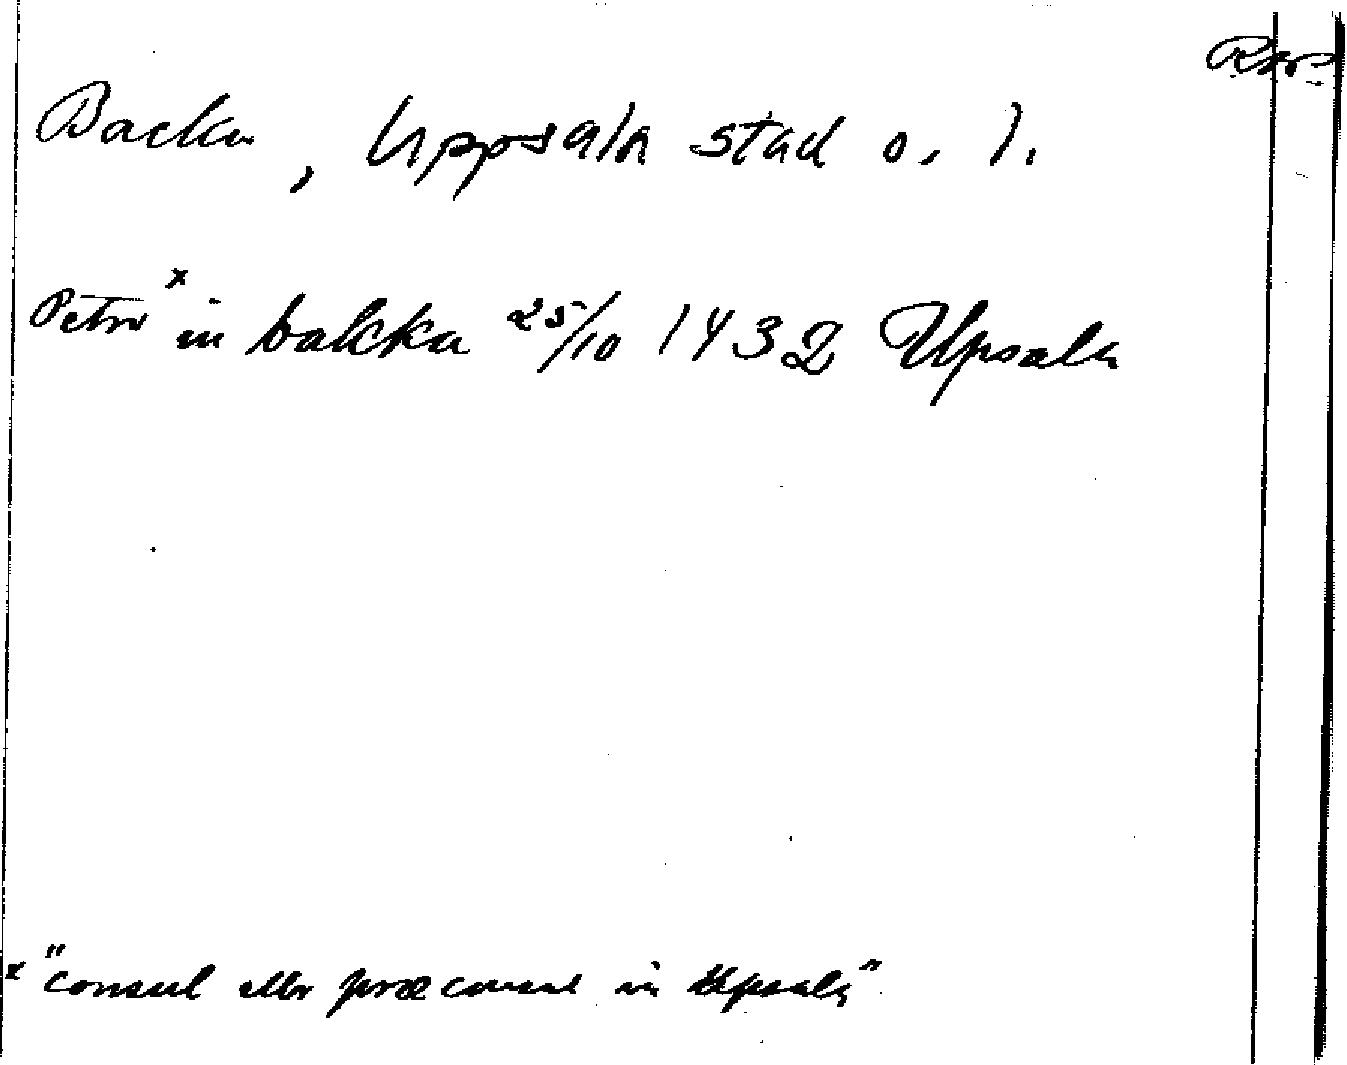 Backa, Uppsala stad o. l.
Petro x in bakka 25/10 1432 Upsala
x "consul eller præconsul in Upsala"